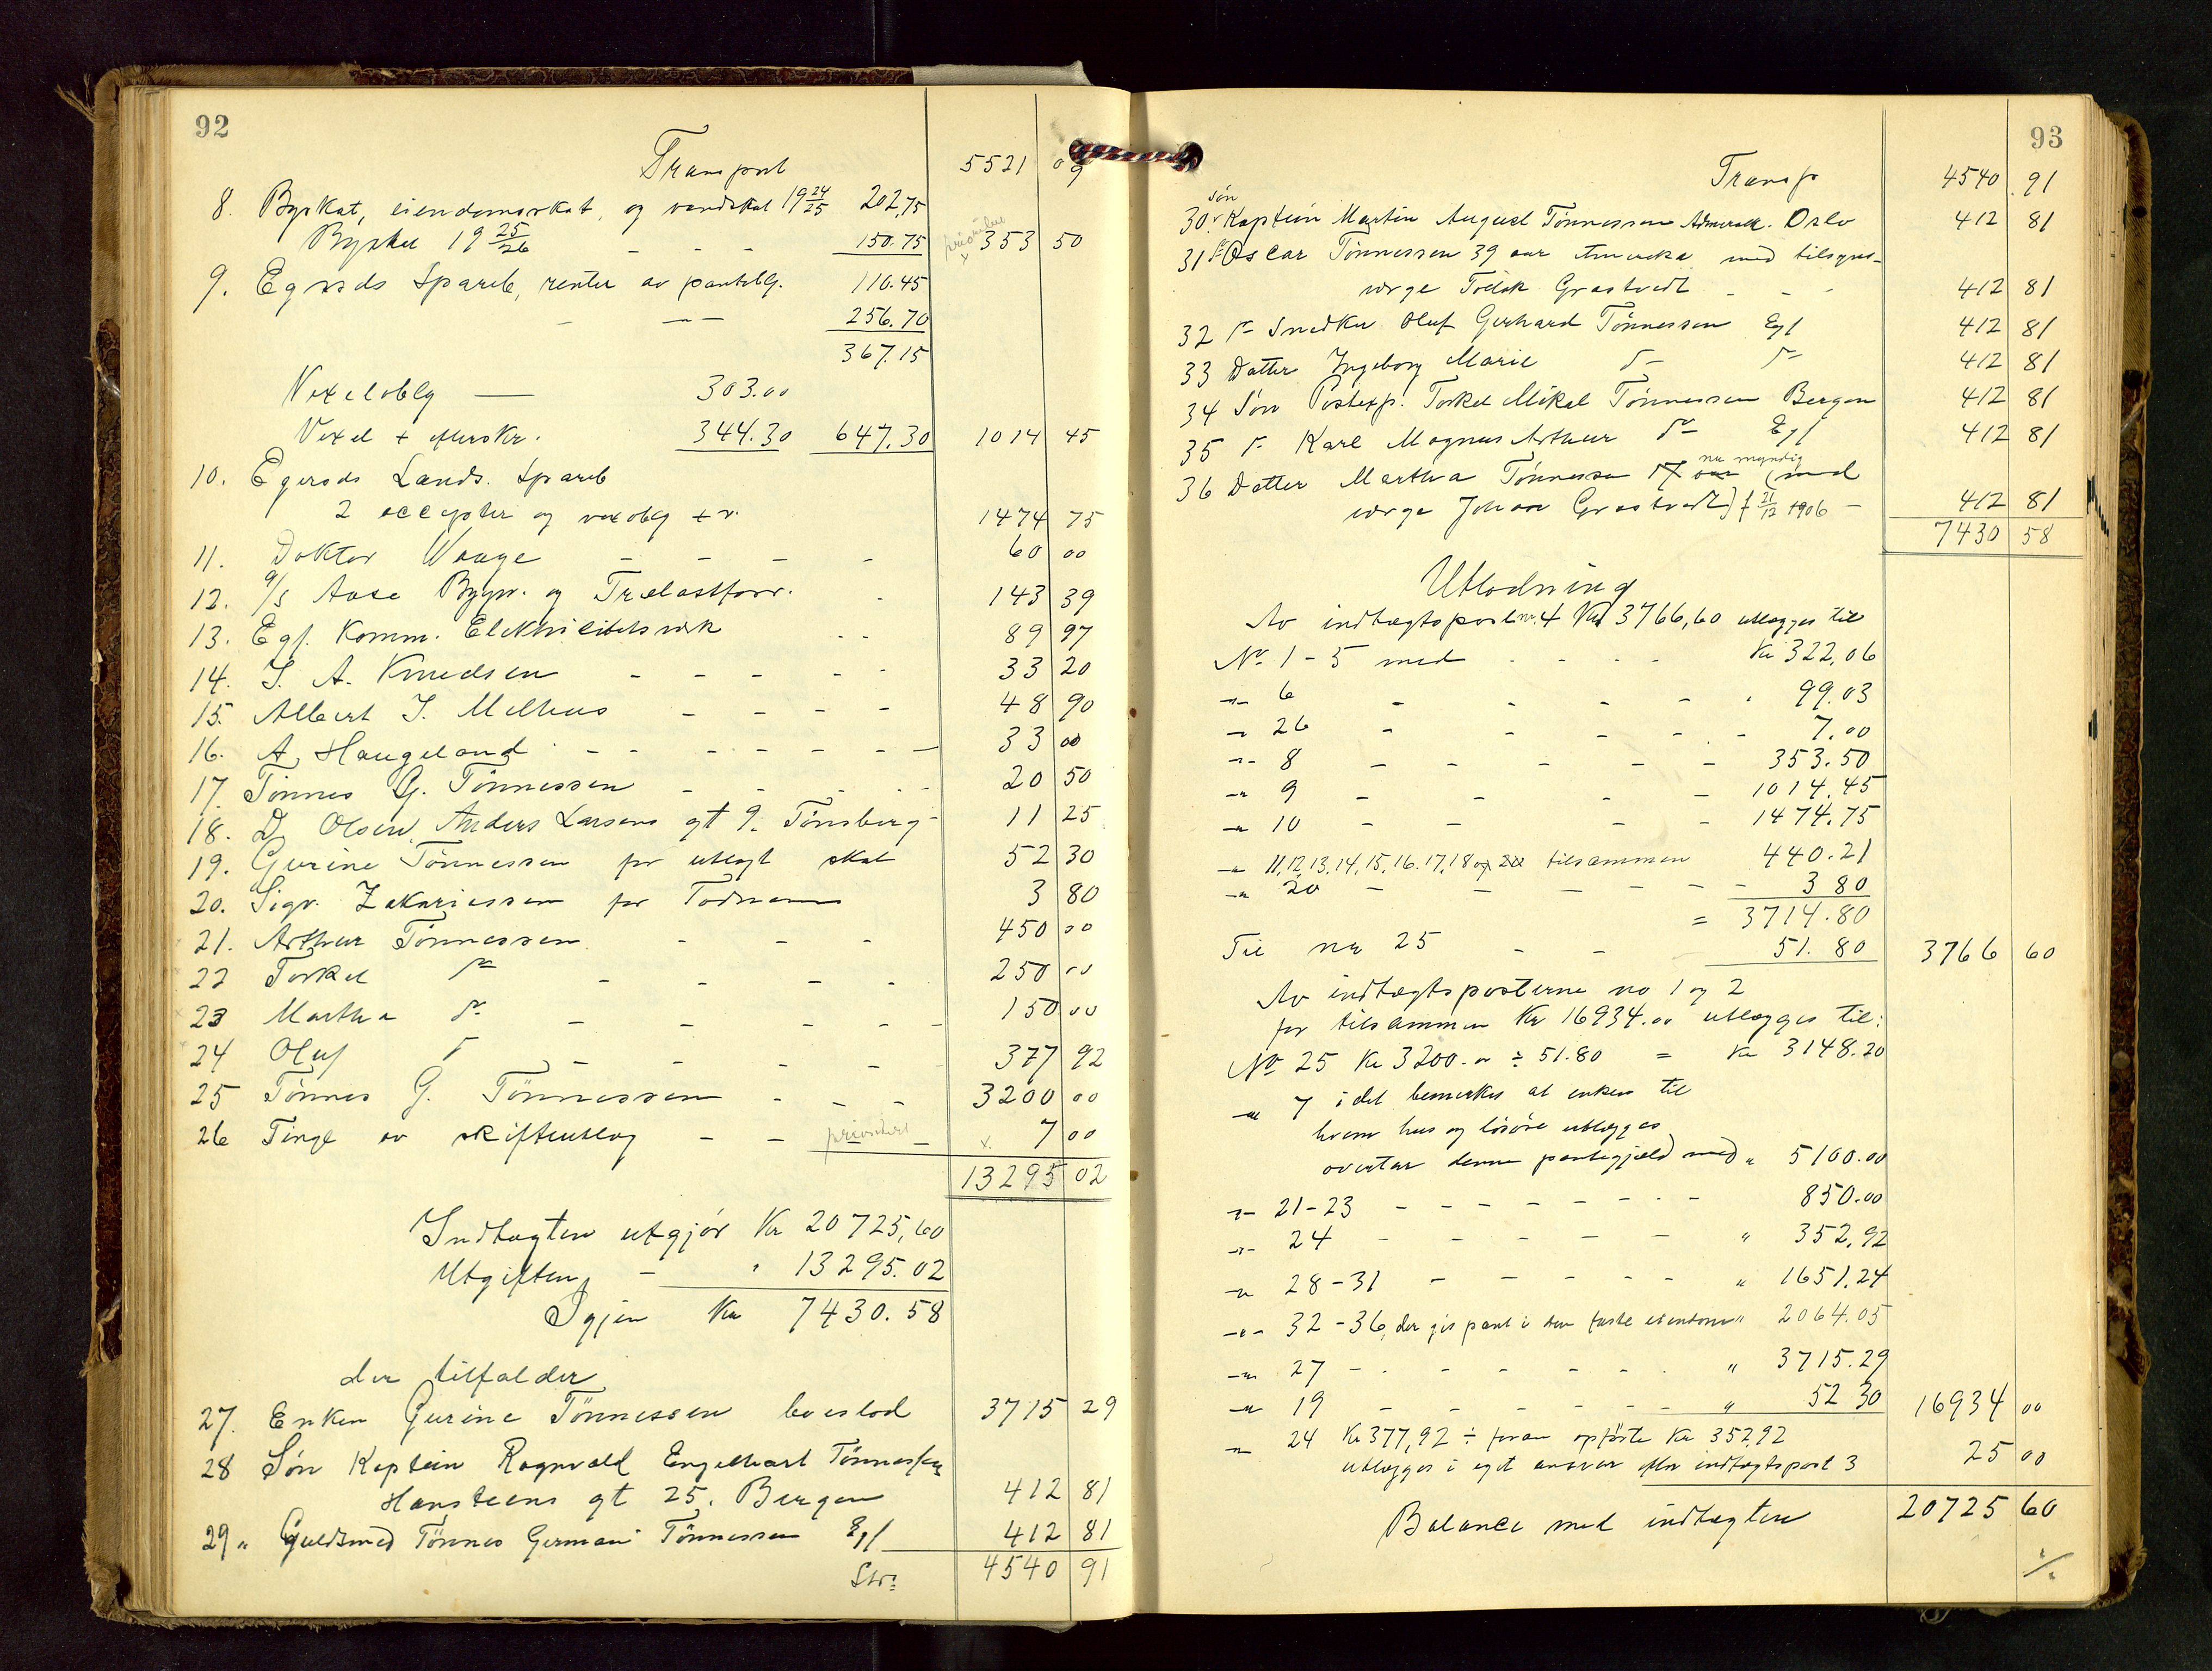 92
Transport 5521 09
8. Byskat, eiendomsskat, og vandskat 19 24/25 202,75
Byskat 19 25/26 - - - 150.75 prioritert x 353 50
9. Egrsds Spareb, renter av panteblg. 110.45
- -"- 256.70
367.15
Vexeloblg — 303.00
Vexel + efterskr. 344.30 647.30 1014 45
10. Egersds Lands. Spareb
2 accepter og vexoblg + r. 1474 75
11. Doktor Waage - - - - 60 00
12. A/S Aase Bygn. og Trælastforr. - 143 39
13. Egf. Komm. Elektricitetsverk - - 89 97
14. S. A. Knudsen - - - - - 33 20
15. Albert J. Melhus - - - - 48 90
16. A. Haugeland - - - - - - - 33 00
17. Tönnes G. Tönnessen - - - - - 20 50
18. D. Olsen, Anders Larsens gt 9. Tönsberg - 11 25
19. Gurine Tönnessen for utlagt skat 52 30
20. Sigv. Zakariassen for Todnem 3 80
21. Arthur Tönnessen - - - 450 00
22 Torkel do - - - - 250 00
23 Martha do - - - - - 150 00
24 Oluf do - - - - 377 92
25 Tönnes G. Tönnessen - - - 3200 00
26 Tingl av skifteutlæg - - prioritert - x. 7 00
13295 02
Indtægten utgjör Kr 20725,60
Utgiften - " 13295.02
Igjen Kr 7430.58
der tilfalder
27. Enken Gurine Tönnessen boeslod 3715 29
28 Sön Kaptein Ragnvald Engelhart Tönnessen
Hansteens gt 25. Bergen 412 81
29 " Guldsmed Tönnes Germani Tönnessen Egf 412 81
Str: 4540 91
93
Transp 4540 91
30. Sön Kaptein Martin August Tönnessen Oslo 412 81
31 do Oscar Tönnessen 39 aar Amerika med tilsyns-
verge Grastveit - - - 412 81
32 do Snedker Oluf Gerhard Tönnessen Egf 412 81
33 Datter Ingeborg Marie do do 412 81
34 Sön Postexp. Torkel Mikal Tönnessen Bergen 412 81
35 do Karl Magnus Arthur do Egf 412 81
36 Datter Martha Tönnessen 17 aar nu myndig (med
verge Johan Grastveit) f 21/12 1906 - 412 81
7430 58
Utlodning
Av indtægtspost nr. 4 Kr 3766,60 utlægges til
No. 1 - 5 med - - - - Kr 322,06
-"- 6 - - - - - 99.03
-"- 26 - - - - - 7.00
-"- 8 - - - - - 353.50
-"- 9 - - - - 1014.45
-"- 10 - - - - 1474.75
-"- 11, 12, 13, 14, 15, 16. 17, 18 og 20 tilsammen 440.21
-"- 20 - - - - - - 3 80
= 3714.80
Til nr 25 - - 51.80 3766 60
Av indtægtsposterne no 1 og 2
for tilsammen Kr 16934.00 utlægges til:
No 25 Kr 3200.00 ÷ 51.80 = Kr 3148.20
-"- 7 idet bemerkes at enken til
hvem hus og lösöre utlægges
overtar denne pantegjæld med " 5100.00
-"- 21-23 - - - - - - - - 850.00
-"- 24 - - - - - " 352,92
-"- 28-31 - - - - - " 1651.24
-"- 32-36, der gis pant i den faste eiendom " 2064.05
-"- 27 - - - - - - - " 3715.29
-"- 19 - - - - - - " 52 30 16934 00
-"- 24 Kr 377,92 ÷ foran opförte Kr 352,92
utlægges i eget ansvar efter indtægtspost 3 25 00
Balance med indtægten 20725 60